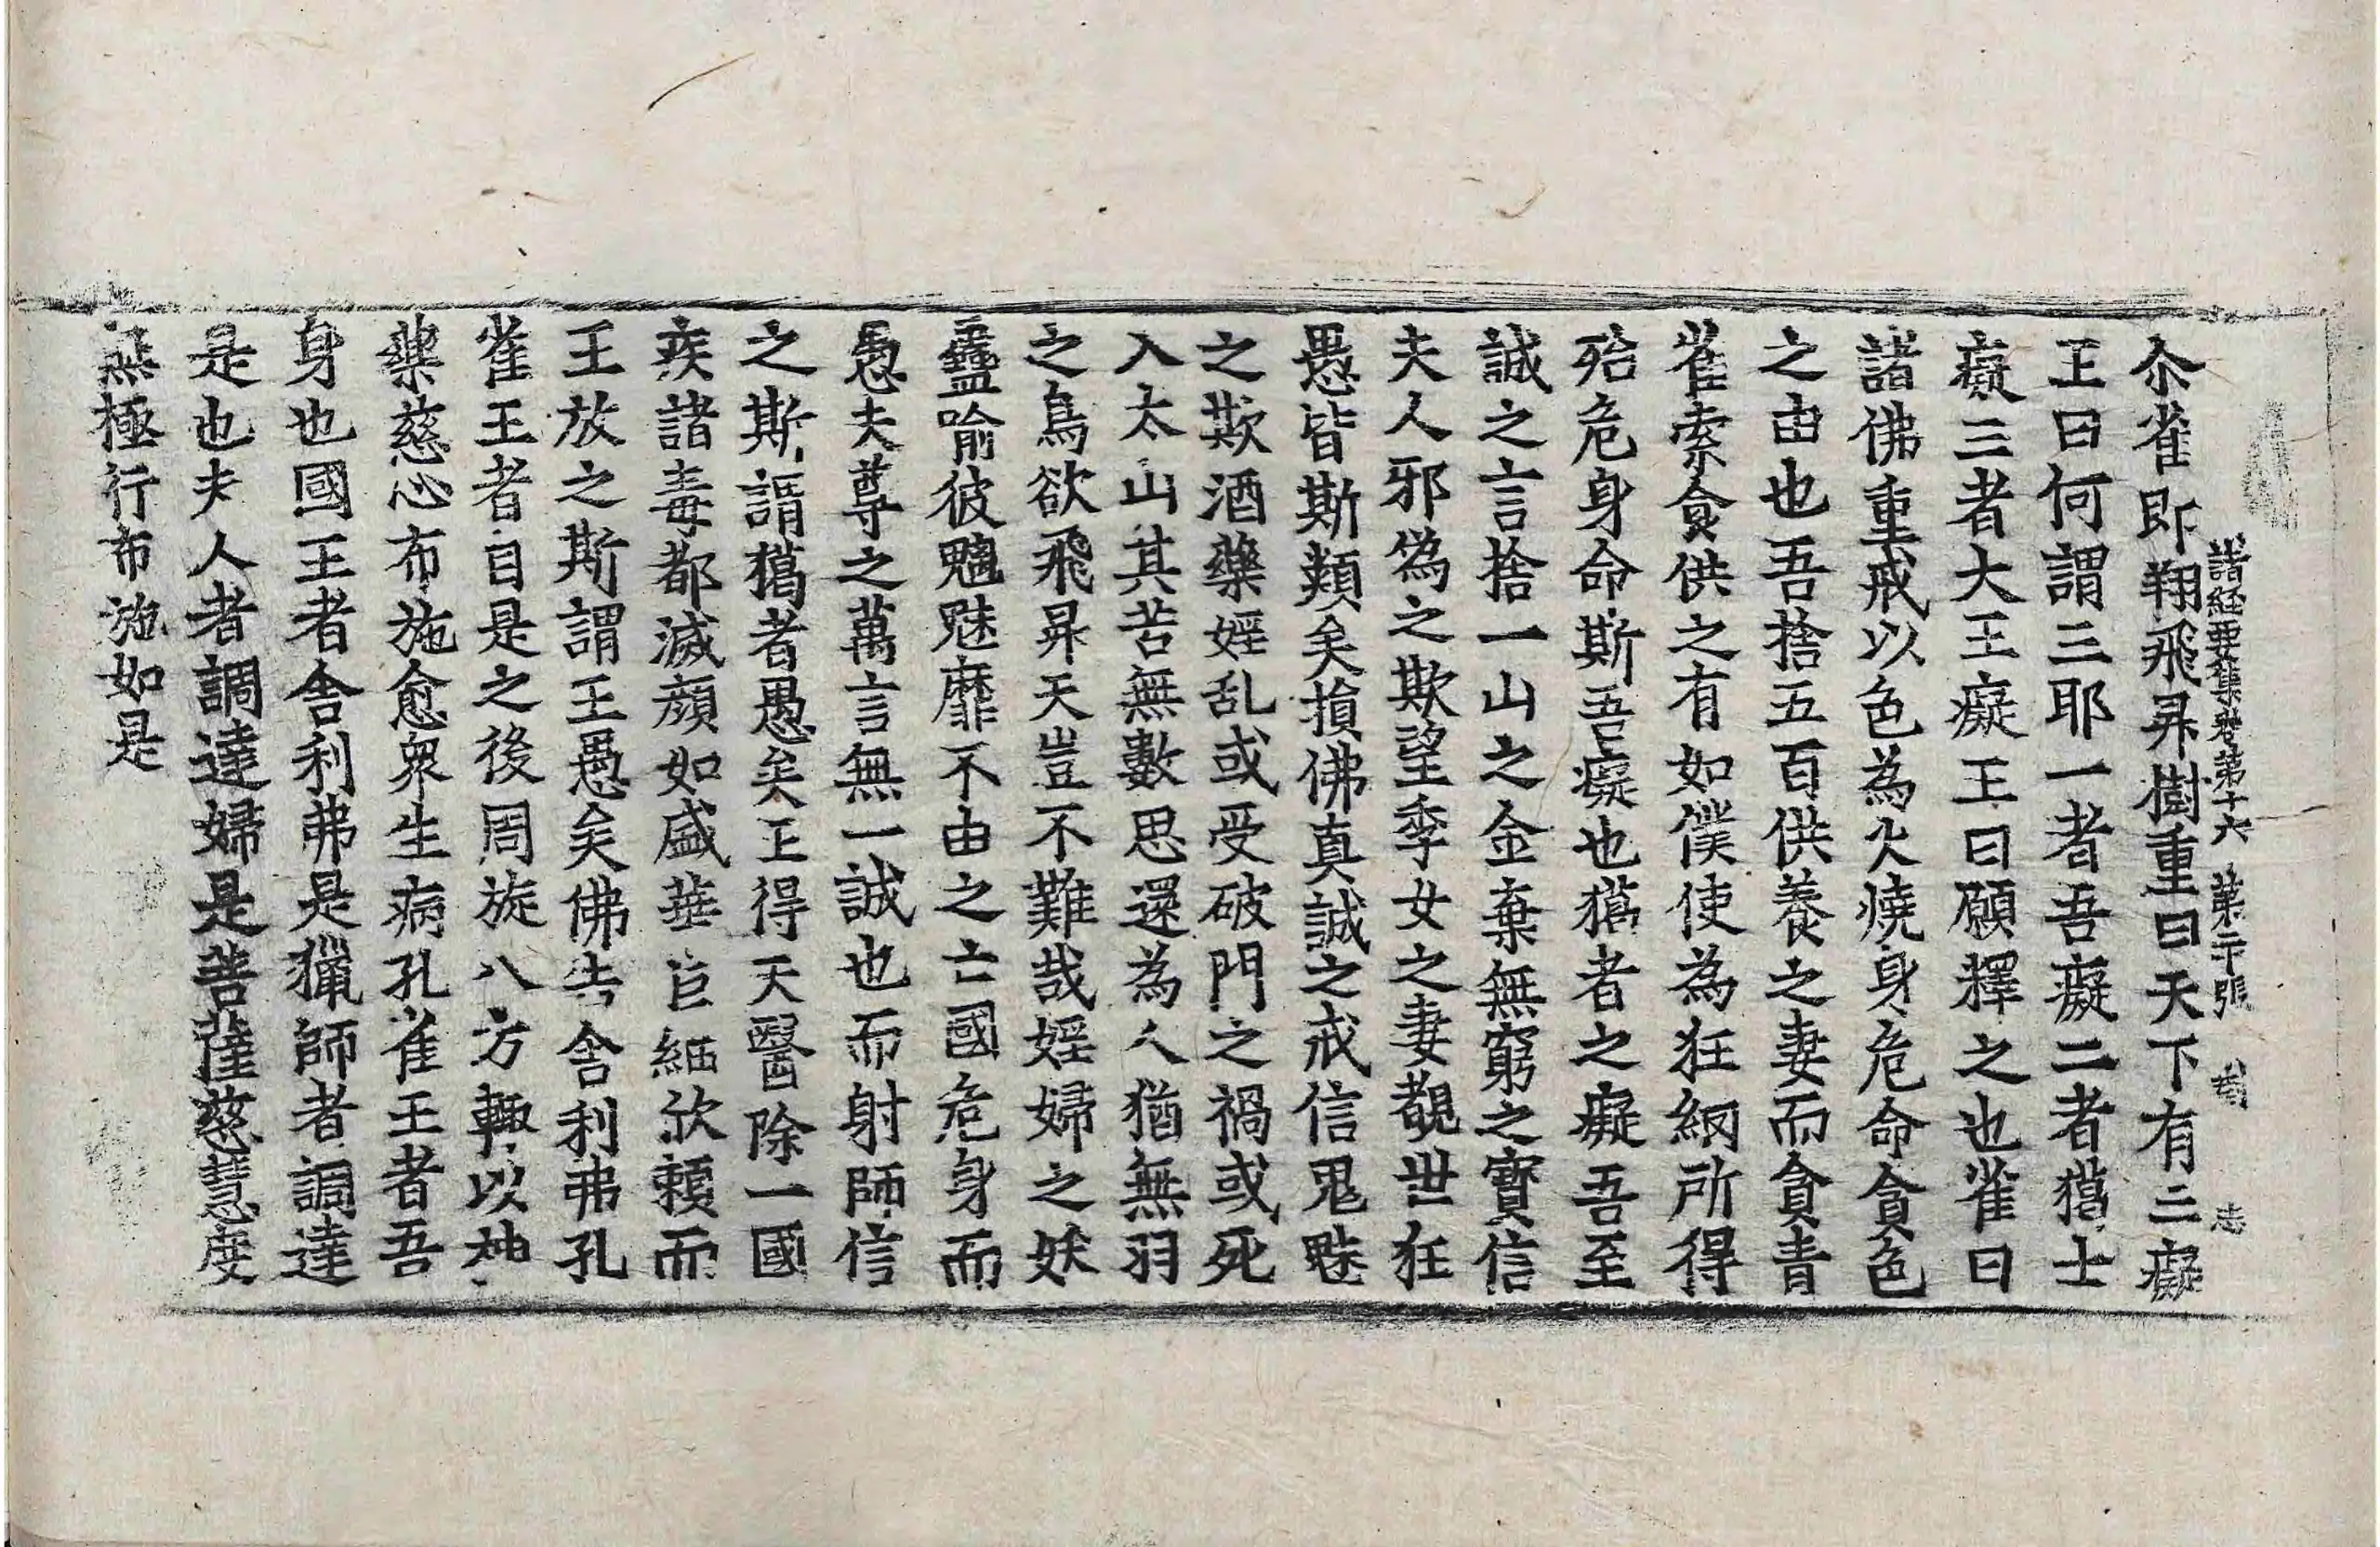 諸経要集卷第十六 第二十張 志
尒雀即翔飛昇樹重曰天下有三癡
王曰何謂三耶一者吾癡二者獦士
癡三者大王癡王曰願釋之也雀曰
諸佛重戒以色為火燒身危命貪色
之由也吾捨五百供養之妻而貪青
雀索食供之有如僕使為狂網所得
殆危身命斯吾癡也獦者之癡吾至
誠之言捨一山之金棄無窮之寶信
夫人邪偽之欺望季女之妻覩世狂
愚皆斯類矣損佛真誠之戒信鬼魅
之欺酒藥婬乱或受破門之禍或死
入太山其苦無數思還為人猶無羽
之鳥欲飛昇天豈不難哉婬婦之妖
蠱喻彼魑魅靡不由之亡國危身而
愚夫尊之萬言無一誠也而射師信
之斯謂獦者愚矣王得天醫除一國
疾諸毒都滅顏如盛華巨細欣賴而
王放之斯謂王愚矣佛告舍利弗孔
雀王者自是之後周旋八方輙以神
藥慈心布施愈衆生病孔雀王者吾
身也國王者舍利弗是獵師者調達
是也夫人者調達婦是菩薩慈慧度
無極行布施如是